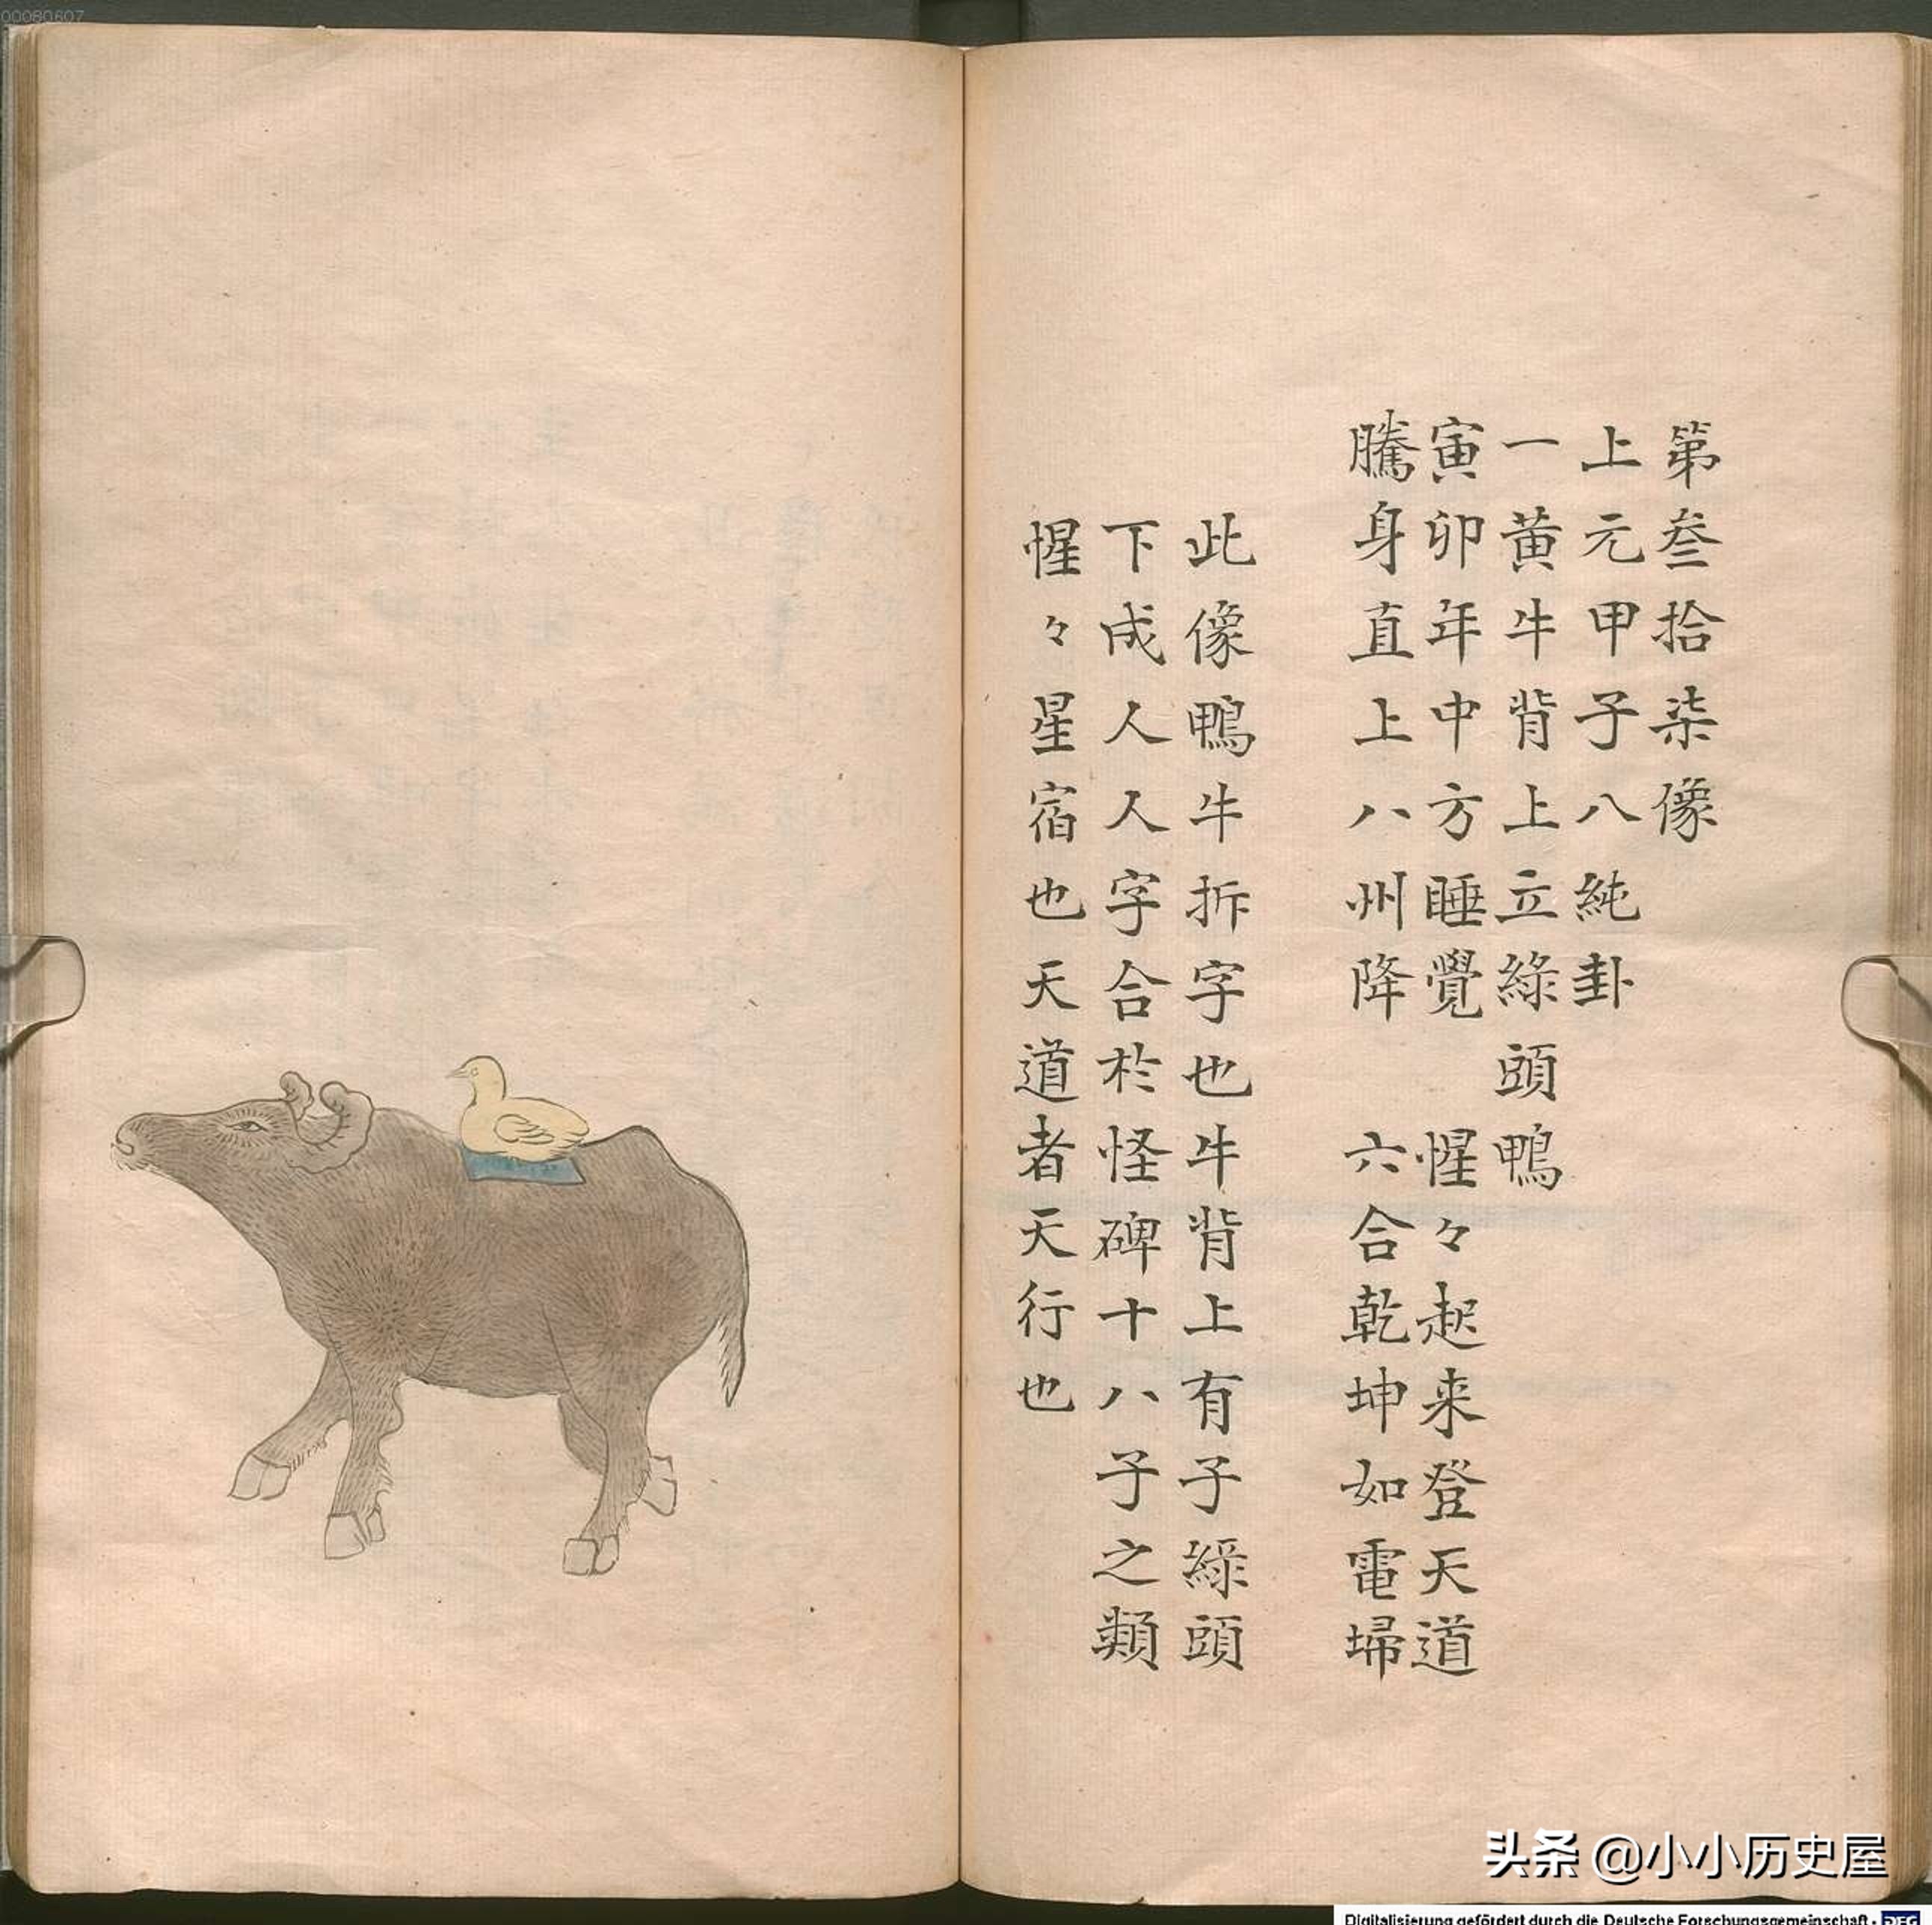 00080607
第叁拾柒像
上元甲子八純卦
一黃牛背上立綠頭鴨
寅卯年中方睡覺 惺々起来登天道
騰身直上八州降 六合乾坤如電埽
此像鴨牛拆字也牛背上有子綠頭
下成人人字合於怪碑十八子之類
惺々星宿也天道者天行也
头条 @小小历史屋
Digitalisierung gefördert durch die Deutsche Forschungsgemeinschaft - DFG